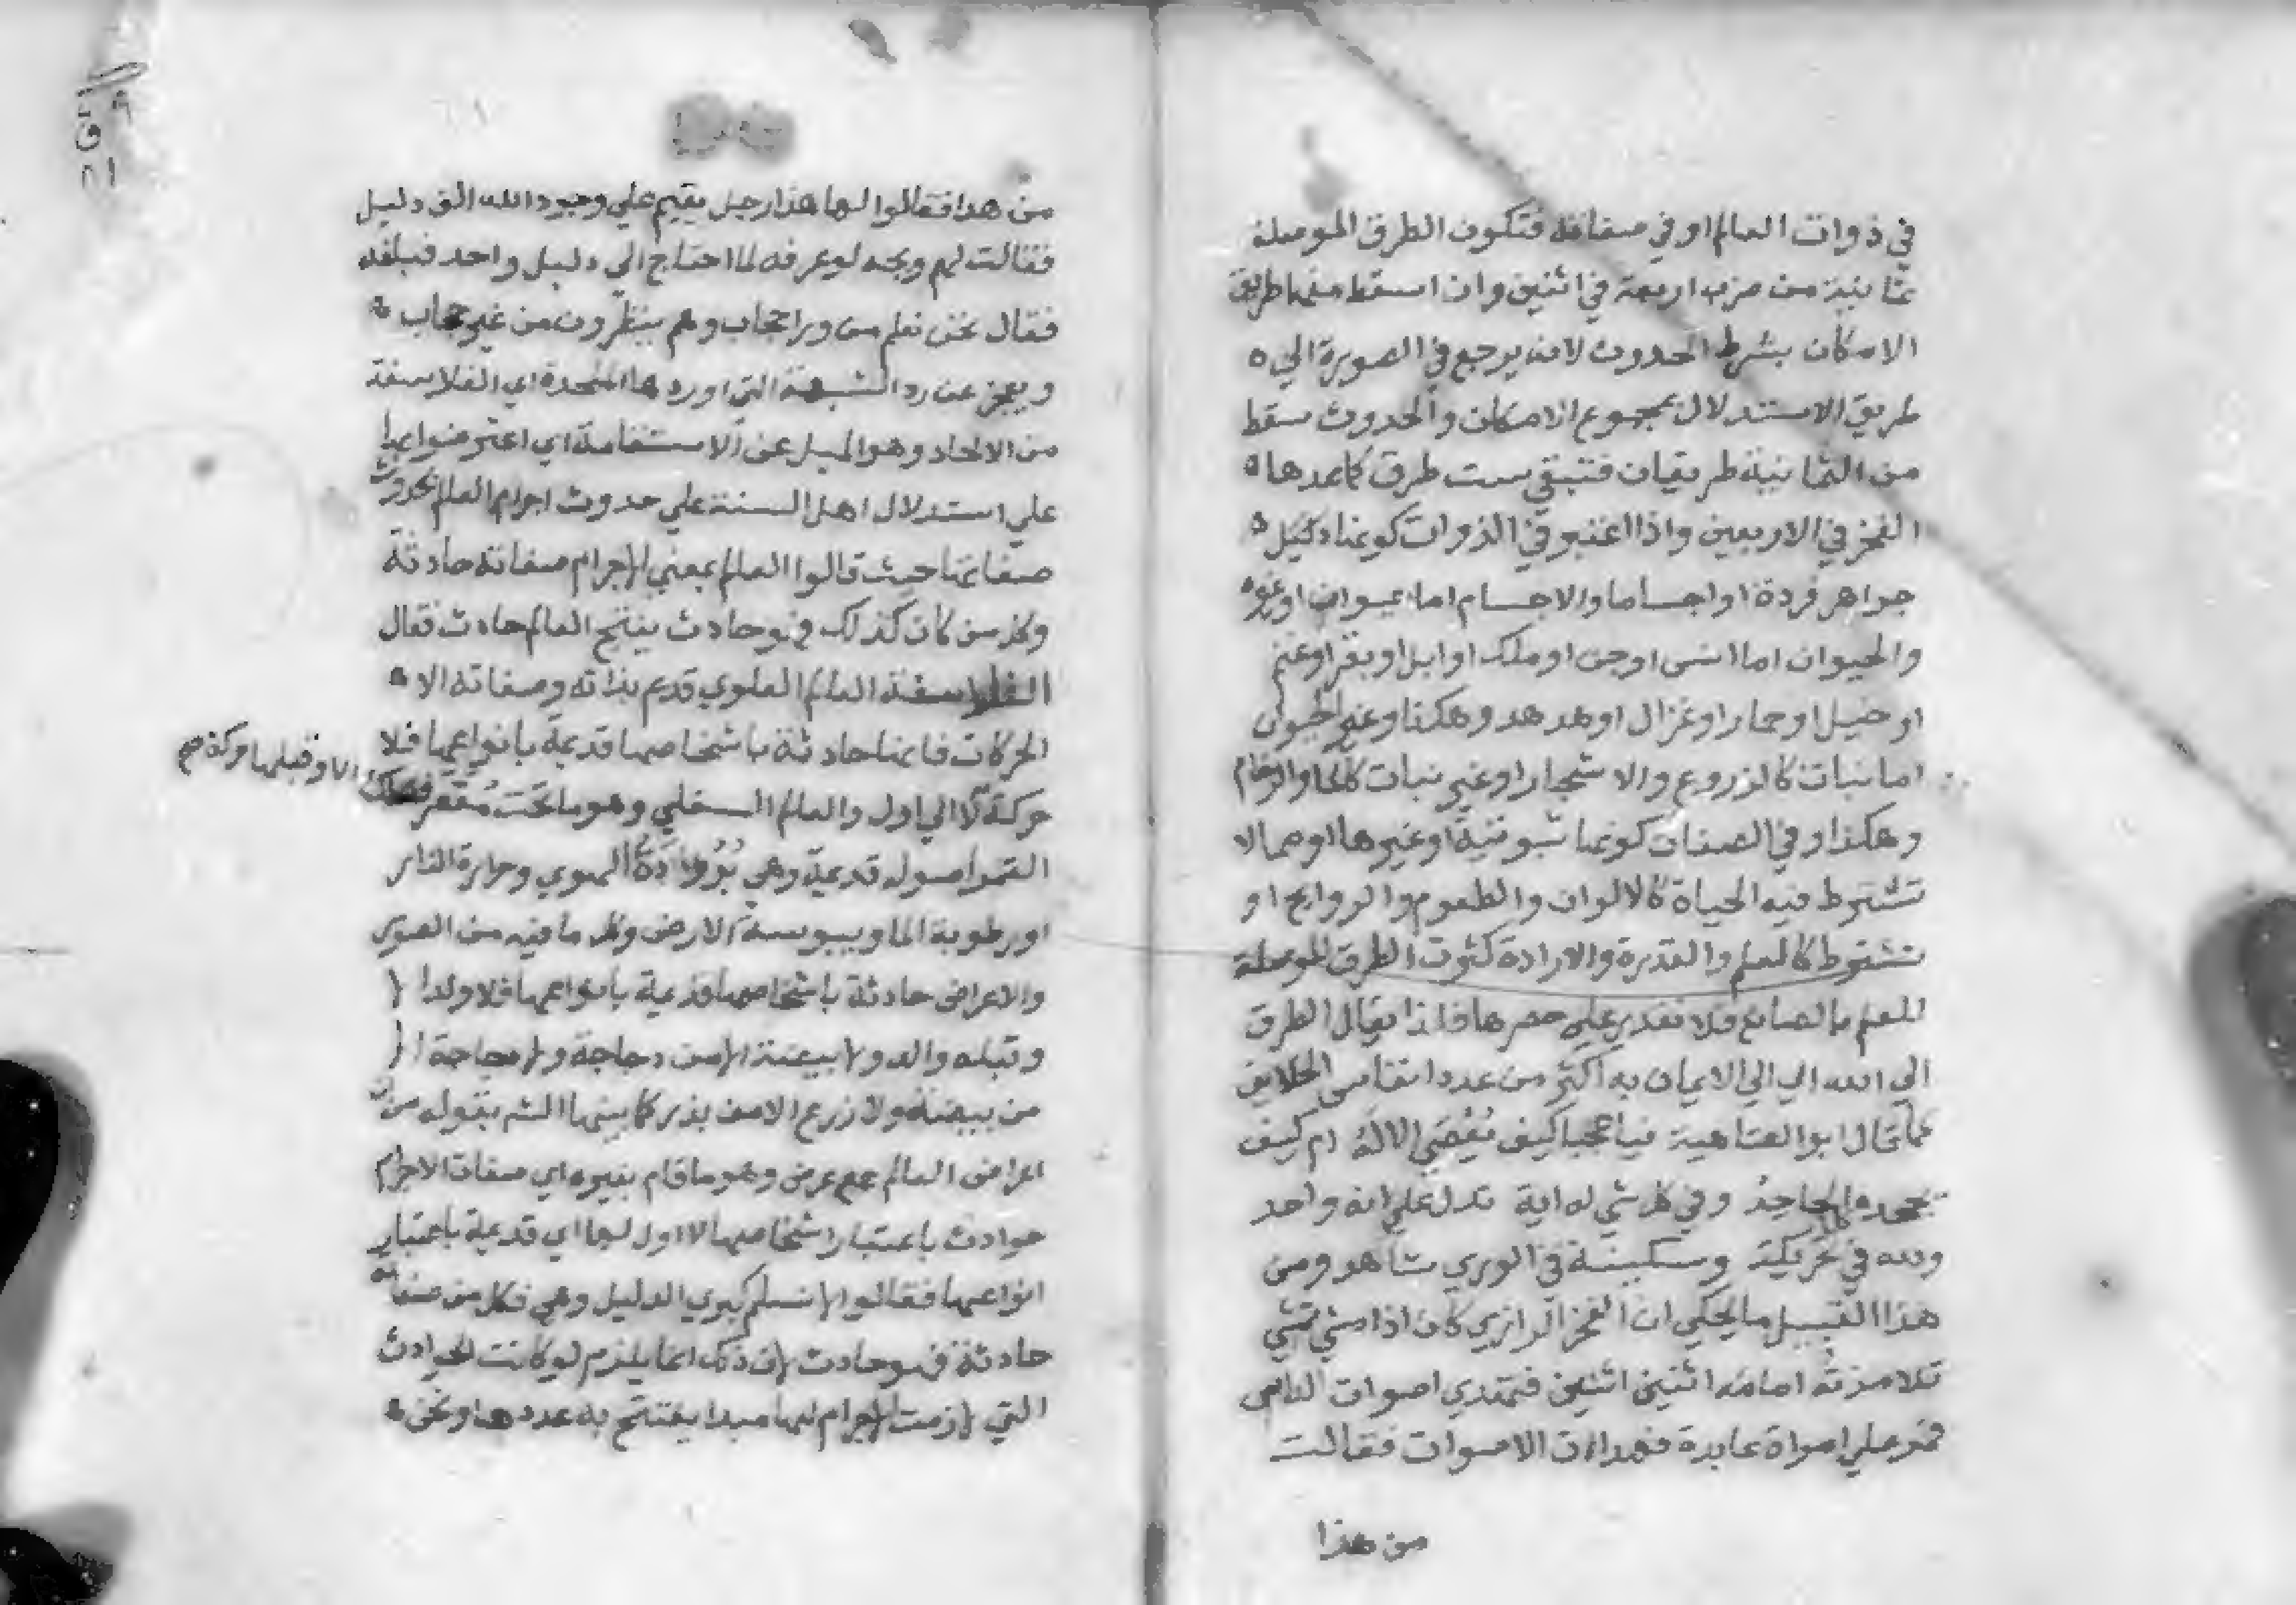 في ذوات العالم او في صفاته فتكون الطرق الموصلة
ثمانية من ضرب اربعة في اثنين وان اسقط منها طريق
الامكان بشرط الحدوث لانه يرجع في الصورة الي ه
طريق الاستدلال بمجموع الامكان والحدوث سقط
من الثمانية طريقان فتبقي ست طرق كما عدها ه
الفخر في الاربعين واذا اعتبر في الذوات كونها
جواهر فردة او اجساما والاجسام اما حيوان او غيره
والحيوان اما انسي او جن او ملك او ابل او بقر او غنم
او خيل او حمار او غزال او هدهد وهكذا وغير الحيوان
اما نبات كالزروع والاشجار او غير نبات كالماء والرخام
وهكذا وفي الصفات كونها ثبوتية او غيرها او مما لا
تشترط فيه الحياة كالالوان والطعوم والروايح او
تشترط كالعلم والقدرة والارادة كثرت الطرق الموصلة
للعلم بالصانع فلا نقدر علي حصرها فلذا يقال الطرق
الي الله اي الي الايمان به اكثر من عدد انفاس الخلايق
كما قال ابو العتاهية فيا عجبا كيف يُعْصَي الالهُ ام كيف
يجحده الجاحِدُ وفي كل شي له اية تدل علي انه واحد
ولله في تحريكة وتسكينة في الوري شاهد ومن
هذا القبيل ما يحكي ان الفخر الرازي كان اذا مشي تمشي
تلامذته امامه اثنين اثنين فتمتدي اصوات الناس
فمر علي امراة عابدة فهدات الاصوات فقالت
من هذا
من هذا فقالوا لها هذا رجل يقيم علي وجود الله الف دليل
فقالت لهم ويحه لو عرفه لما احتاج الي دليل واحد فبلغه
فقال نحن نعلم من ورا حجاب وهم ينظرون من غير حجاب
ويعجز عن رد الشبهة التي اوردها الملحدة اي الفلاسفة
من الالحاد وهو الميل عن الاستقامة اي اعترضوا بها
علي استدلال اهل السنة علي حدوث اجرام العالم بحدوث
صفاتها حيث قالوا العالم بمعني الاجرام صفاته حادثة
وكل من كان كذلك فهو حادث ينتج العالم حادث فقال
الفلاسفة العالم العلوي قديم بذاته وصفاته الا
الحركات فانها حادثة باشخاصها قديمة بانواعها فلا
حركة الا وقبلها حركة صح
لا الي اول والعالم السفلي وهو ما تحت مُقعَّر فلك
القمر اصوله قديمة وهي بُرُودَةُ الهوي وحرارة النار
او رطوبة الما ويبوسة الارض وكل ما فيه من الصور
والاعراض حادثة باشخاصها قديمة بانواعها فلا ولد الا
وقبله والد ولا بيضة الا من دجاجة ولا دجاجة الا
من بيضة ولا زرع الا من بذر كما بينها الشم بقوله من ان
اعراض العالم جمع عرض وهو ما قام بغيره اي صفات الاجرام
حوادث باعتبار اشخاصها لا اول لها اي قديمة باعتبار
انواعها فقالوا لا نسلم كبري الدليل وهي فكل من صفاته
حادثة فهو حادث لان ذلك انما يلزم لو كانت الحوادث
التي لازمت الاجرام لها مبدا يفتتح به عددها ونحن